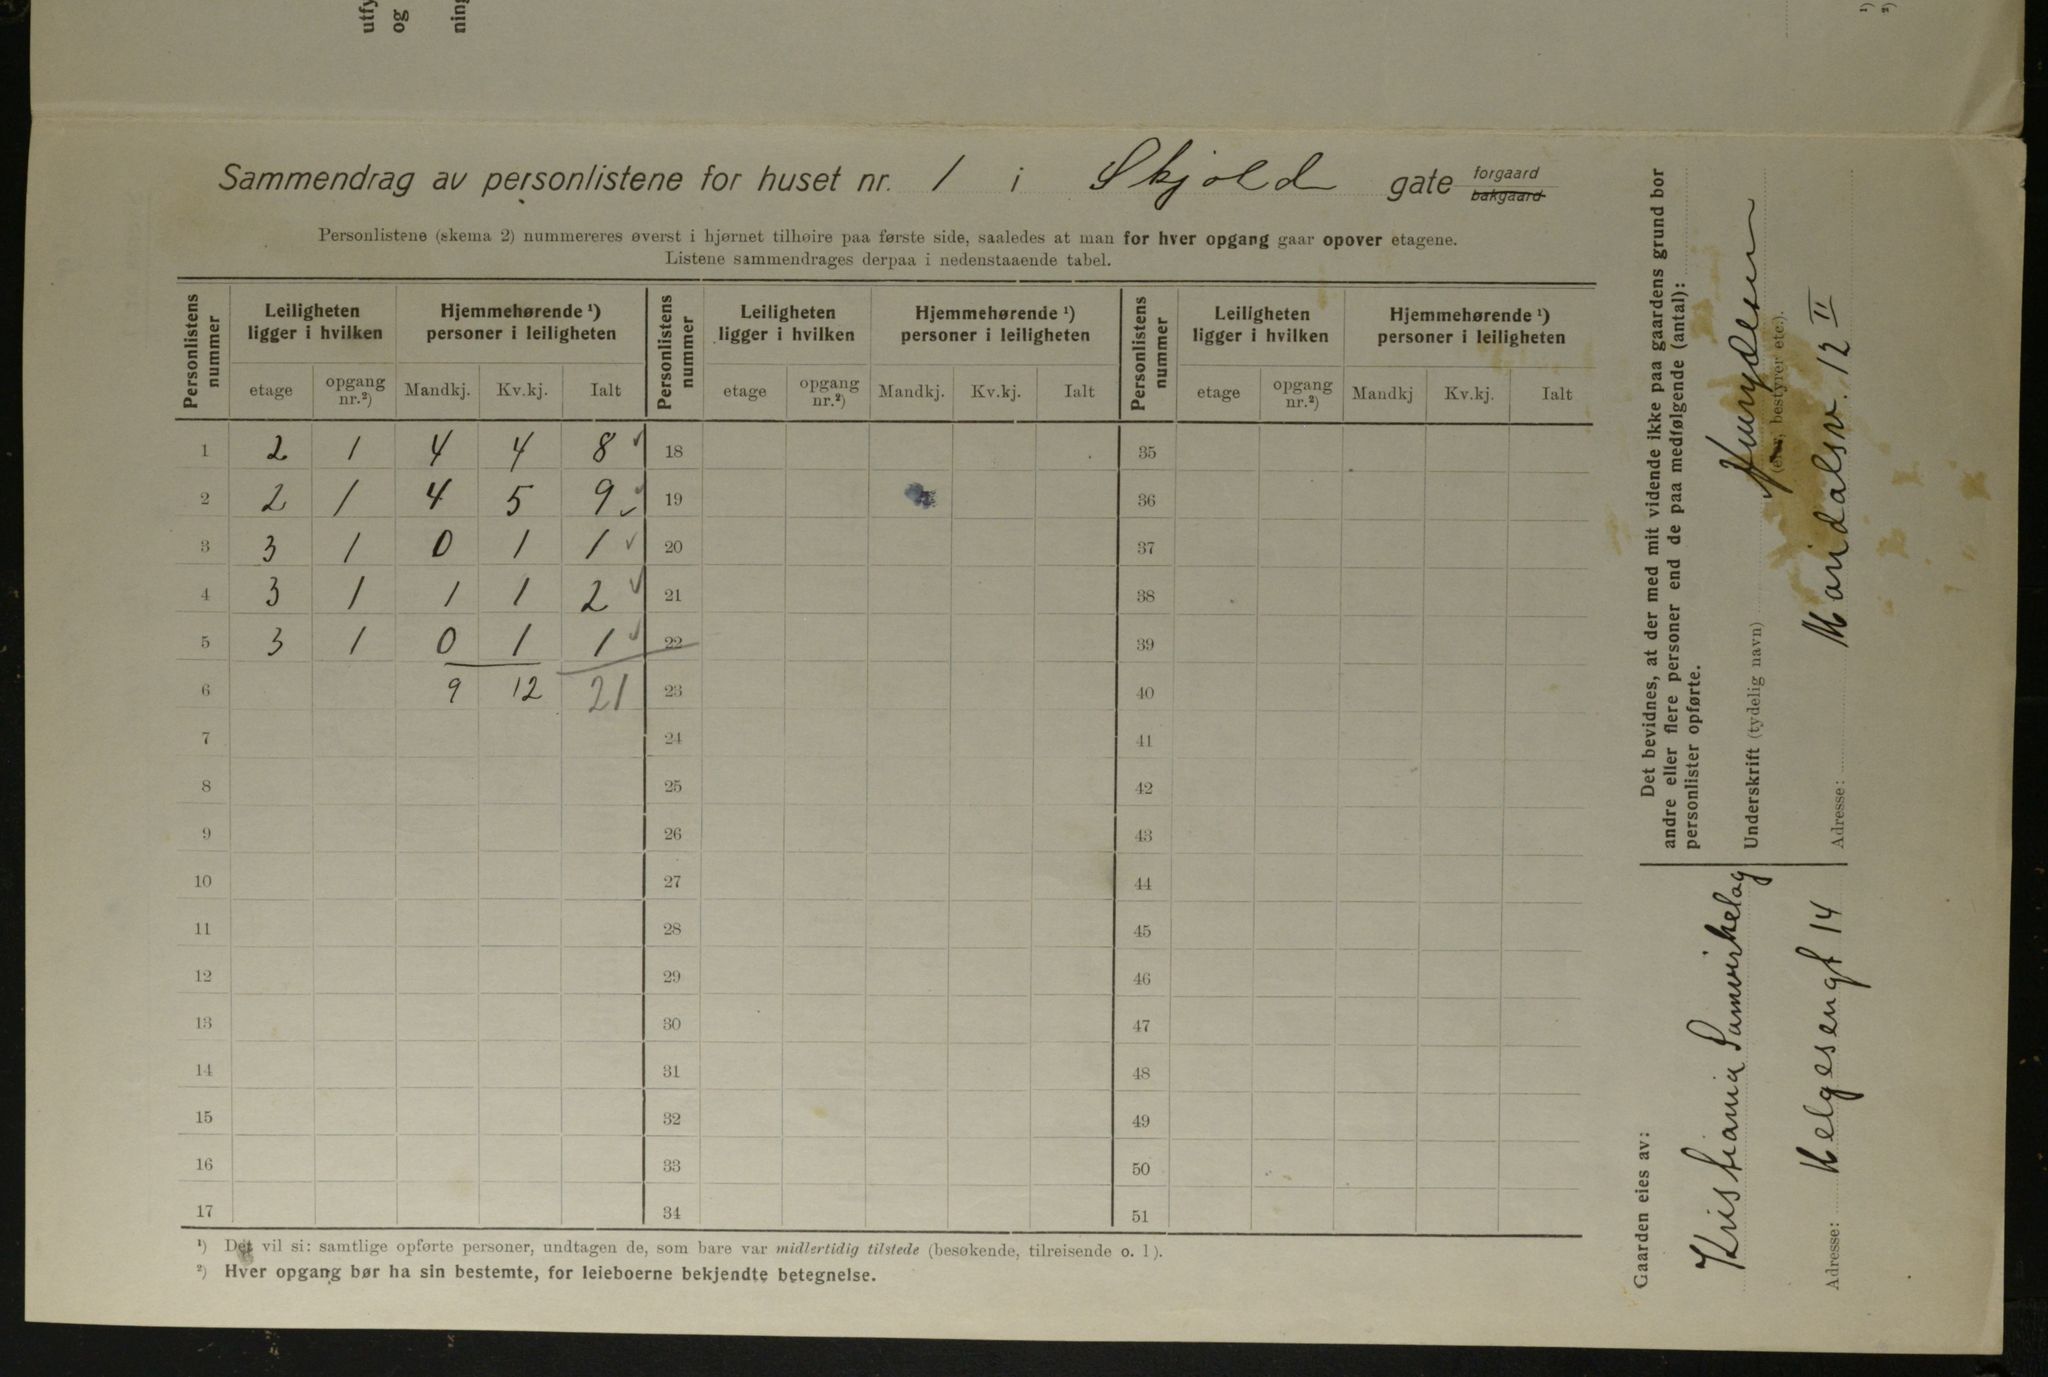 utfy
og
ning
1)
2)
Sammendrag av personlistene for huset nr. 1 i Skjold gate forgaard bakgaard
Personlistene (skema 2) nummereres øverst i hjørnet tilhøire paa første side, saaledes at man for hver opgang gaar opover etagene.
Listene sammendrages derpaa i nedenstaaende tabel.
Personlistens nummer Leiligheten ligger i hvilken Hjemmehørende ¹) personer i leiligheten Personlistens nummer Leiligheten ligger i hvilken Hjemmehørende ¹) personer i leiligheten Personlistens nummer Leiligheten ligger i hvilken Hjemmehørende ¹) personer i leiligheten
etage opgang nr.²) Mandkj. Kv.kj. Ialt etage opgang nr.²) Mandkj. Kv.kj. Ialt etage opgang nr.²) Mandkj Kv.kj. Ialt
1 2 1 4 4 8 ✓ 18 35
2 2 1 4 5 9 ✓ 19 36
3 3 1 0 1 1 ✓ 20 37
4 3 1 1 1 2 ✓ 21 38
5 3 1 0 1 1 ✓ 22 39
6 9 12 21 23 40
7 24 41
8 25 42
9 26 43
10 27 44
11 28 45
12 29 46
13 30 47
14 31 48
15 32 49
16 33 50
17 34 51
¹) Det vil si: samtlige opførte personer, undtagen de, som bare var midlertidig tilstede (besøkende, tilreisende o. l).
²) Hver opgang bør ha sin bestemte, for leieboerne bekjendte betegnelse.
Det bevidnes, at der med mit vidende ikke paa gaardens grund bor
andre eller flere personer end de paa medfølgende (antal):
personlister opførte.
Underskrift (tydelig navn)
(eier, bestyrer etc.).
Adresse: Maridalsv. 12 II
Gaarden eies av:
Kristiania Samvirkelag
Adresse: Helgesengt 14